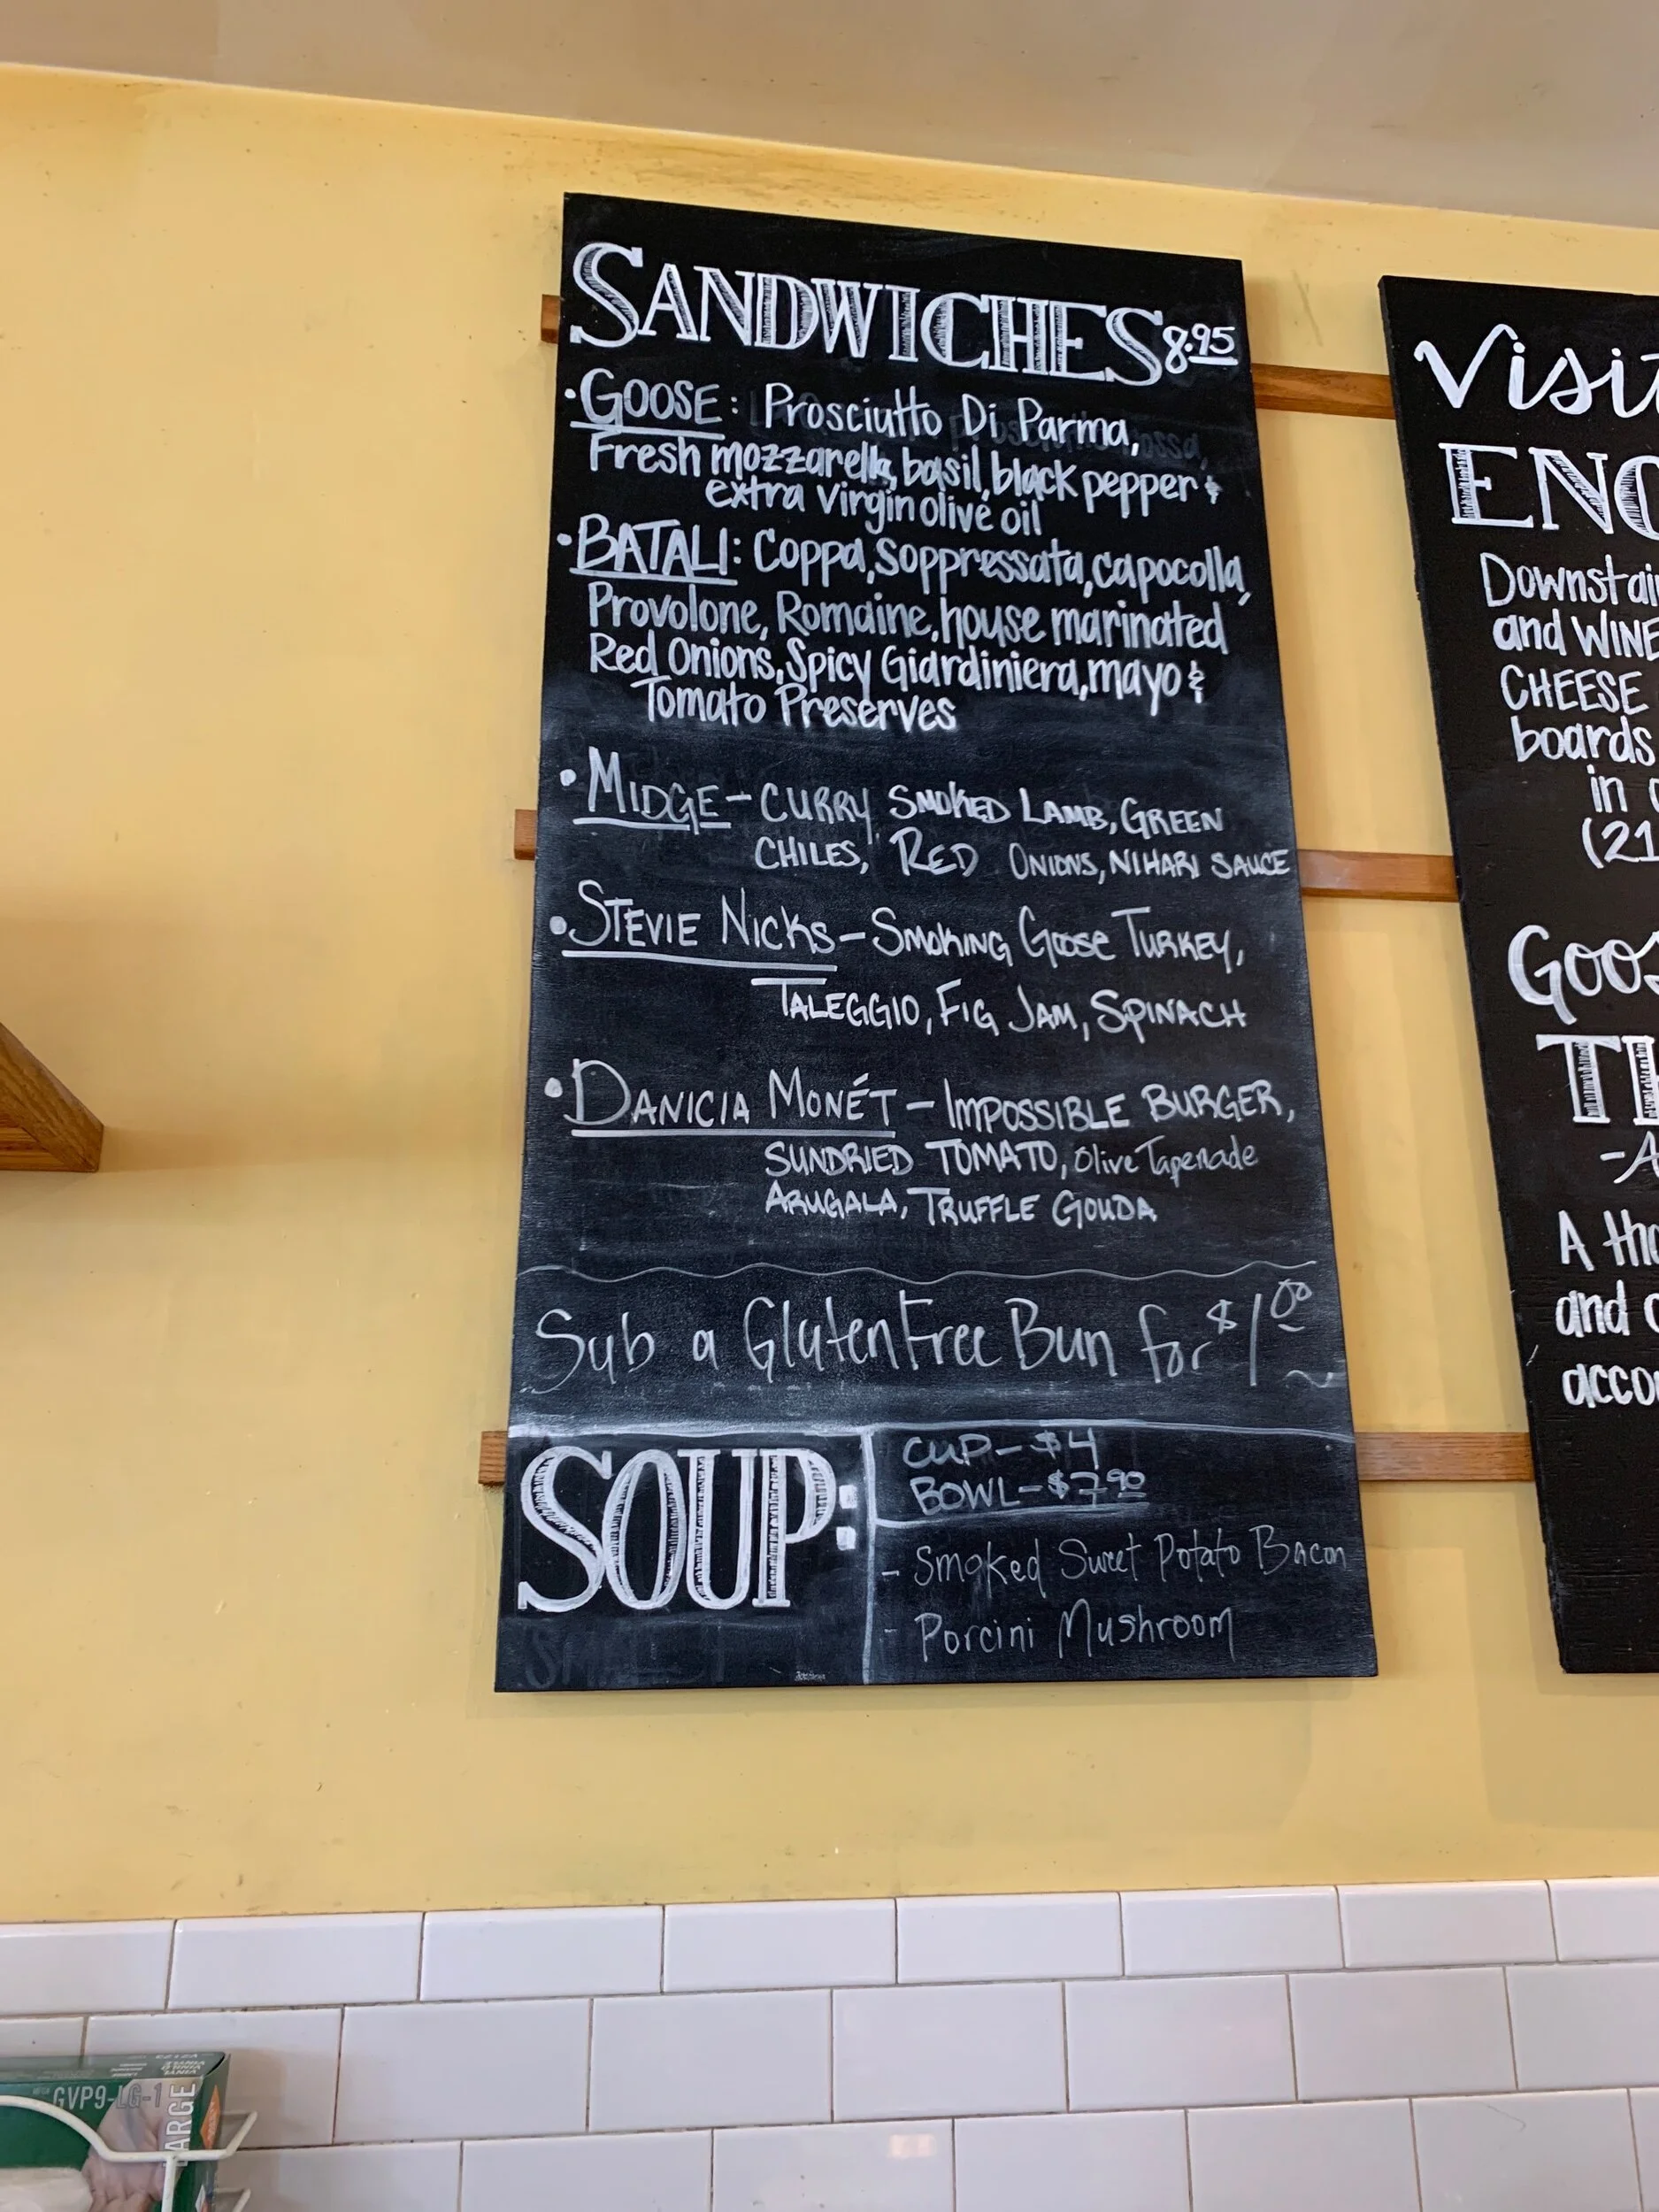 SANDWICHES 8.95
• GOOSE: Prosciutto Di Parma,
Fresh mozzarella, basil, black pepper &
extra virgin olive oil
• BATALI: Coppa, Soppressata, capocolla,
Provolone, Romaine, house marinated
Red Onions, Spicy Giardiniera, mayo &
Tomato Preserves
• MIDGE - CURRY SMOKED LAMB, GREEN
CHILES, RED ONIONS, NIHARI SAUCE
• STEVIE NICKS - SMOKING GOOSE TURKEY,
TALEGGIO, FIG JAM, SPINACH
• DANICIA MONÉT - IMPOSSIBLE BURGER,
SUNDRIED TOMATO, Olive Tapenade
ARUGALA, TRUFFLE GOUDA
Sub a Gluten Free Bun for $1.00
SOUP:
CUP - $4
BOWL - $7.90
- Smoked Sweet Potato Bacon
- Porcini Mushroom
Visit
ENO
Downstair
and WINE
CHEESE
boards
in
(21
GOOS
TH
-A
A tho
and
accor
GVP9-LG-1
ARGE